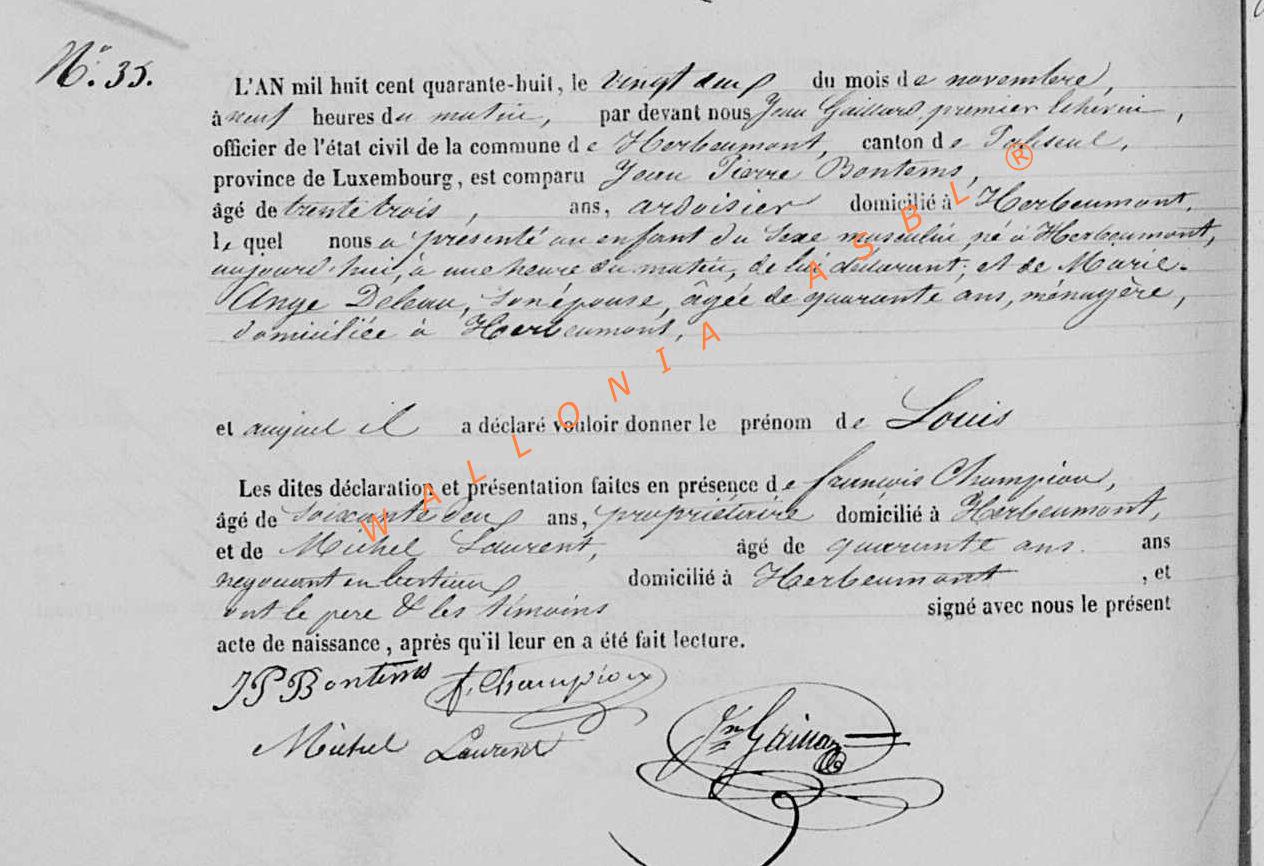 N° 35.
L'AN mil huit cent quarante-huit, le vingt deux du mois de novembre,
à neuf heures du matin, par devant nous Jean Gaillard, premier Echevin,
officier de l'état civil de la commune de Herbeumont, canton de Paliseul,
province de Luxembourg, est comparu Jean Pierre Bontems,
âgé de trente trois, ans, ardoisier domicilié à Herbeumont,
lequel nous a présenté un enfant du sexe masculin né à Herbeumont,
aujourd'hui, à une heure du matin, de lui déclarant, et de Marie-
Ange Debau, son épouse, âgée de quarante ans, ménagère,
domiciliée à Herbeumont,
et auquel il a déclaré vouloir donner le prénom de Louis
Les dites déclaration et présentation faites en présence de françois Champion,
âgé de soixante deux ans, propriétaire domicilié à Herbeumont,
et de Michel Laurent, âgé de quarante ans. ans
negociant en bestiaux domicilié à Herbeumont, et
ont le pere & les témoins signé avec nous le présent
acte de naissance, après qu'il leur en a été fait lecture.
JP Bontems f. Champion
Michel Laurent Jn Gaillard
WALLONIA ASBL ®